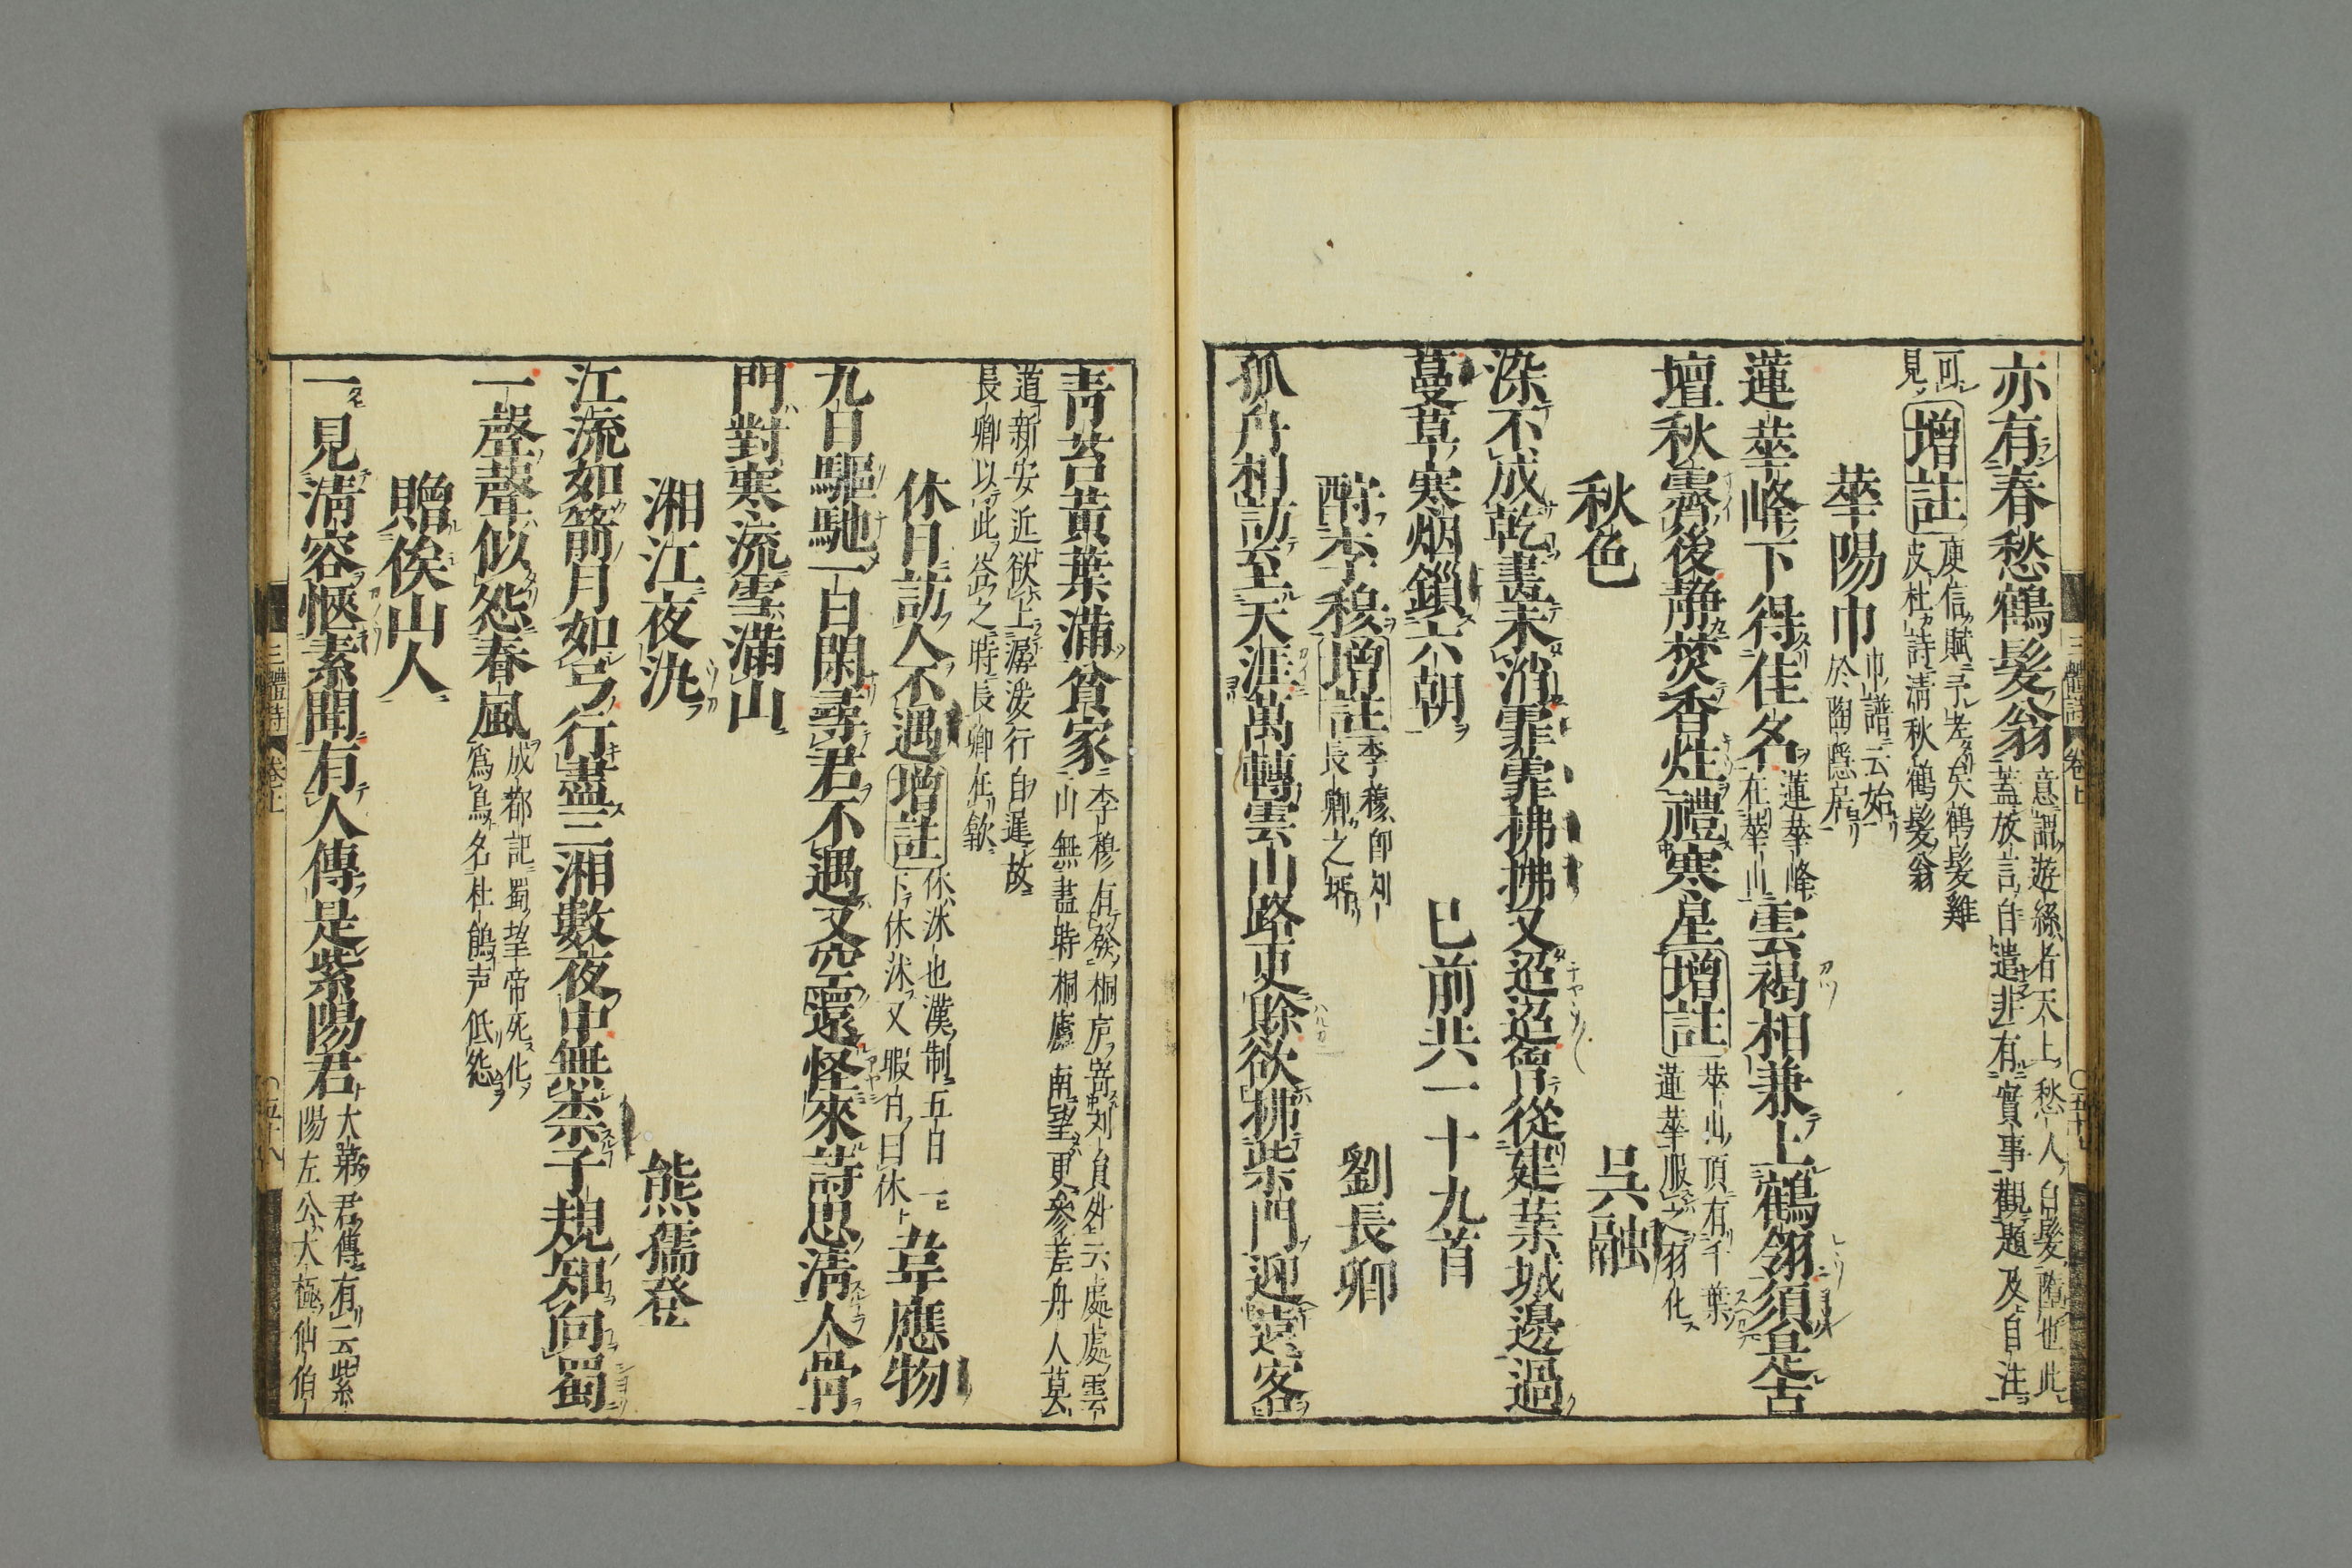 亦有春愁鶴髮翁
意謂遊絲者天上愁人白髮墮也此
蓋放言自遣非有實事觀題及自注
可
見
增註
庾信賦予老矣鶴髮雞
皮杜詩淸秋鶴髮翁
華陽巾
巾譜云始
於陶隱居
蓮華峰下得佳名
蓮華峰
在華山
雲褐相兼上鶴翎須是古
壇秋霽後靜焚香炷禮寒星
增註
華山頂有千葉
蓮華服之羽化
秋色
吳融
染不成乾畫未消霏霏拂拂又迢迢曾從建業城邊過
蔓草寒烟鎖六朝
已前共一十九首
酧李穆
增註
李穆卽刘
長卿之壻
劉長卿
孤舟相訪至天涯萬轉雲山路更賖欲掃柴門迎遠客
靑苔黃葉滿貧家
李穆有發桐庐寄刘員外云處處雲
山無盡時桐廬南望更參差舟人莫
道新安近欲上潺湲行自遲故
長卿以此答之時長卿在歙
休日訪人不遇
增註
休沐也漢制五日一
下休沐又暇日曰休
韋應物
九日驅馳一日閑尋君不遇又空還怪來詩思淸人骨
門對寒流雪滿山
湘江夜泛
熊孺登
江流如箭月如弓行盡三湘數夜中無柰子規知向蜀
一聲聲似怨春風
成都記蜀望帝死化
爲鳥名杜鵑声低怨
贈侯山人
一見淸容愜素聞有人傳是紫陽君
大茅君傳有云紫
陽左公太極仙伯
三體詩
卷上
三體詩
卷上
五十八